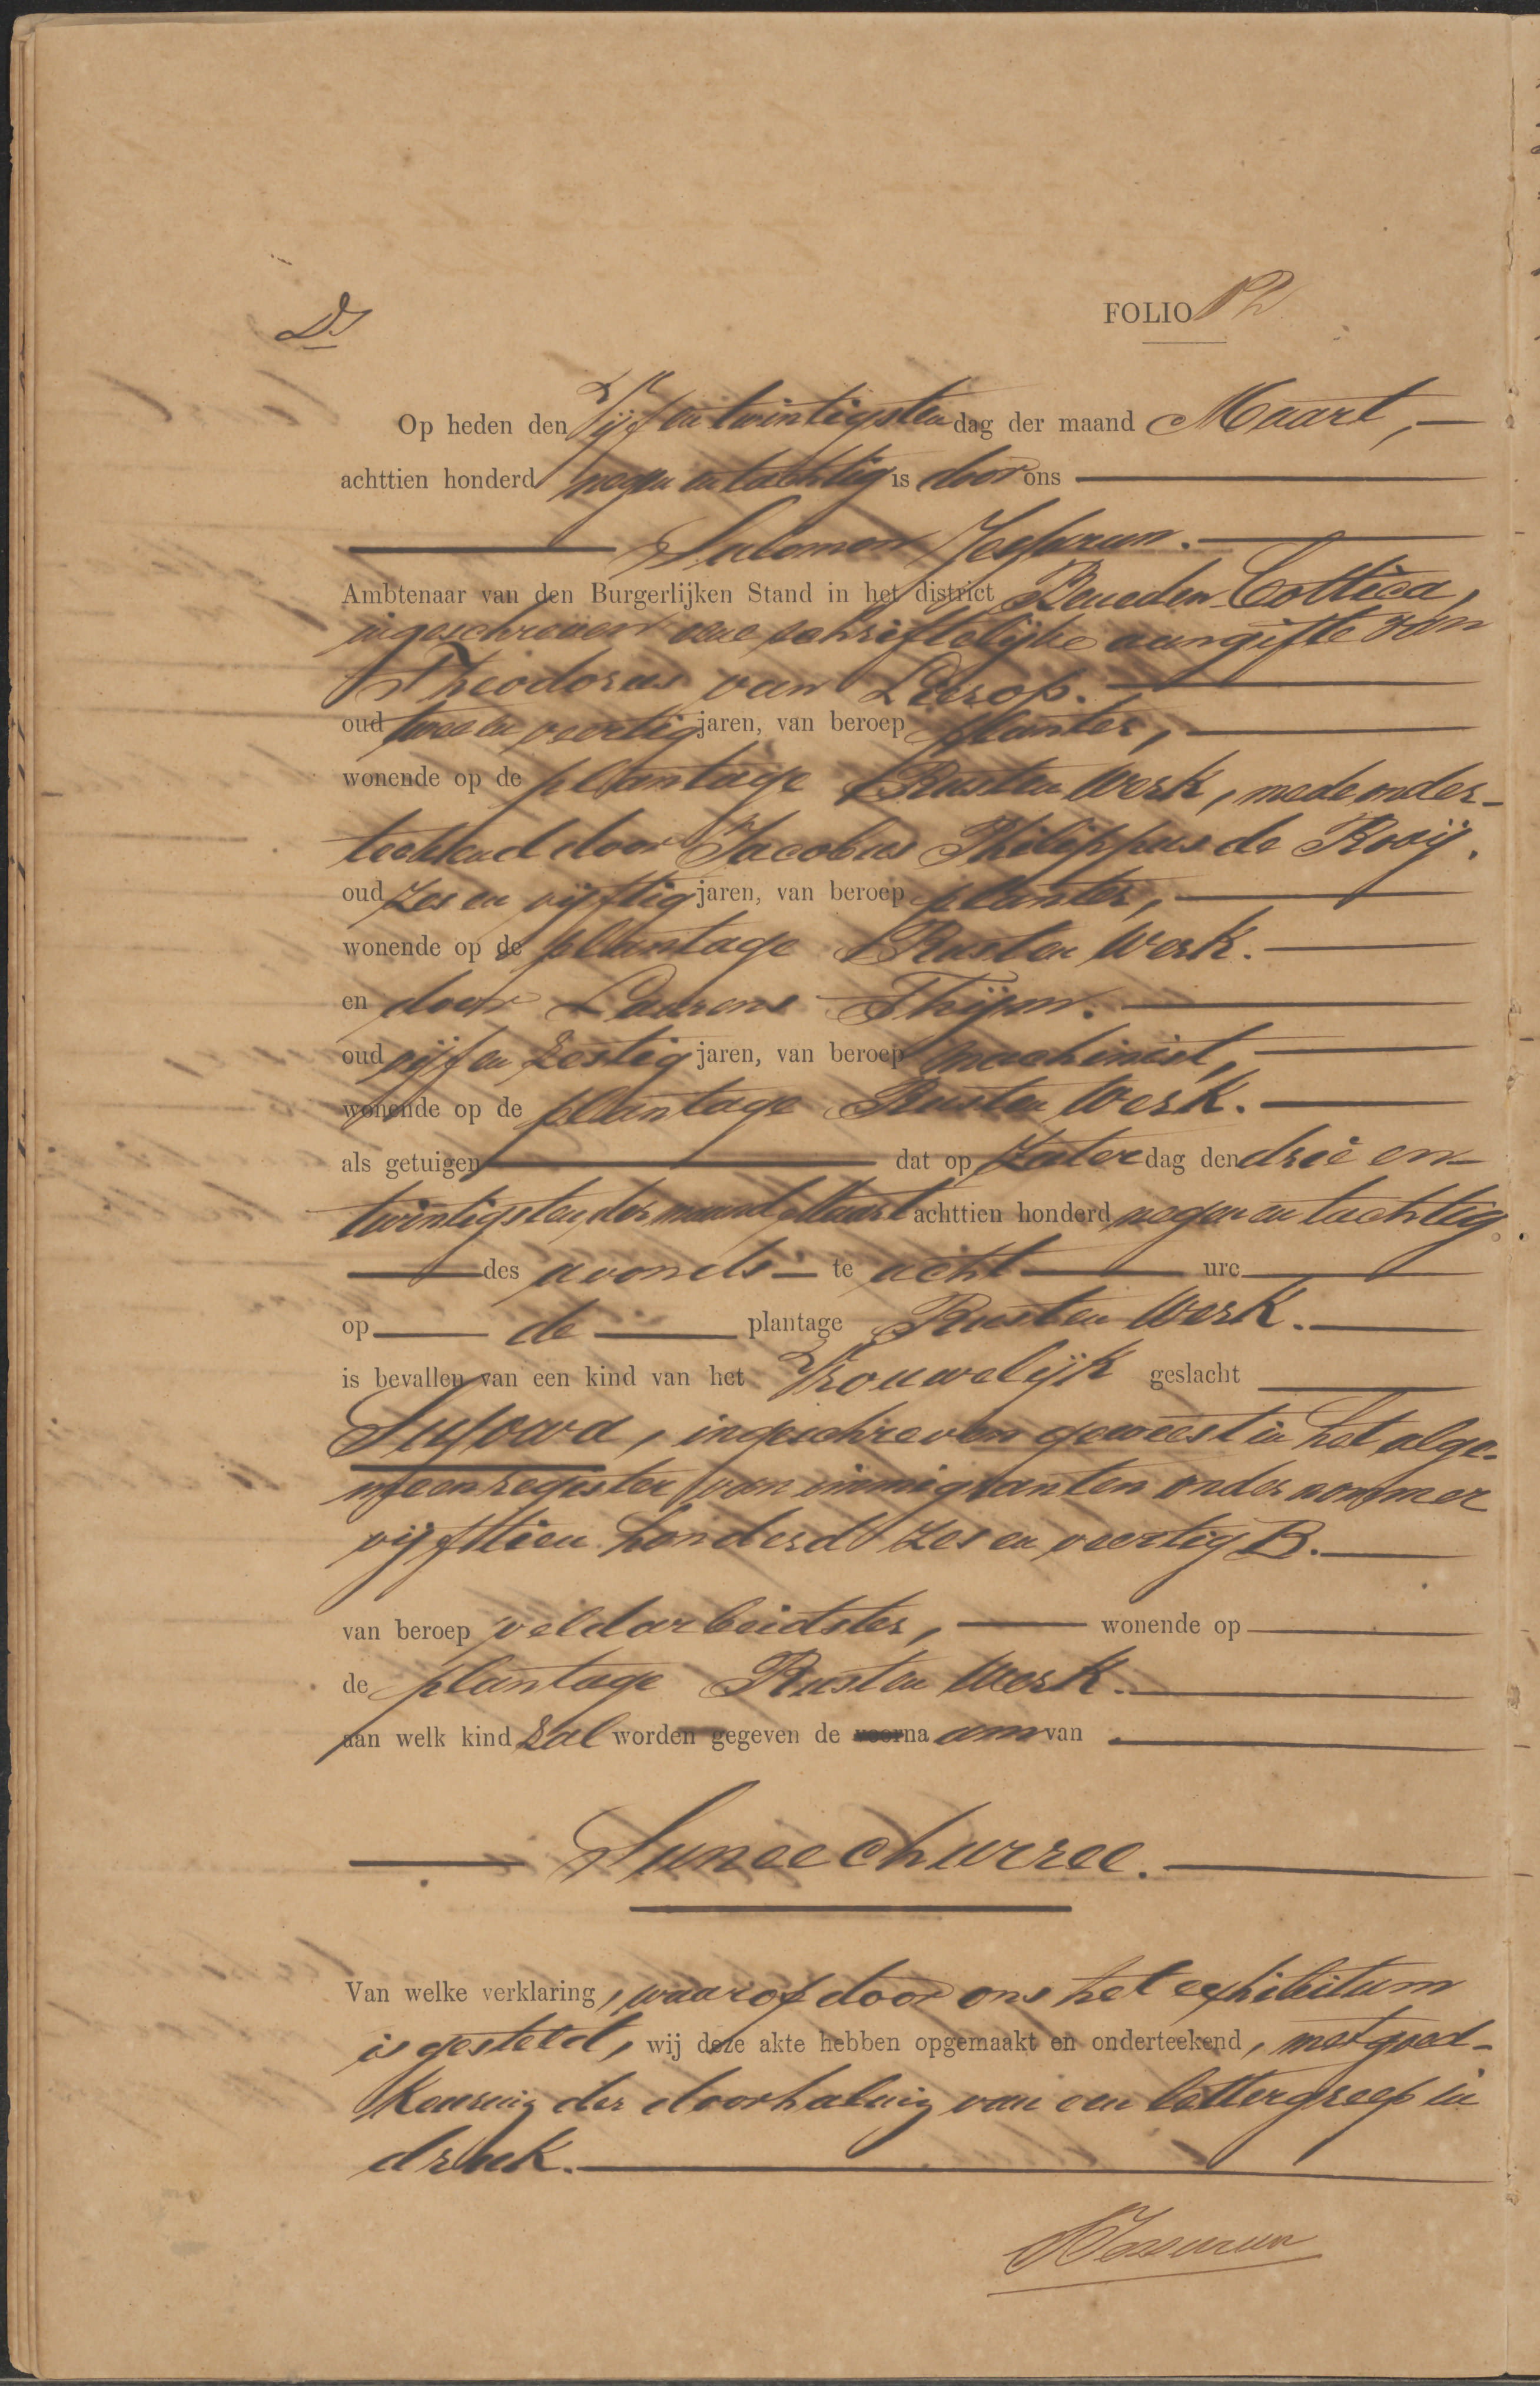 Ds
FOLIO 12
Op heden den Vijf en twintigsten dag der maand Maart,
achttien honderd negen en tachtig is door ons
Salomon Jessurun.
Ambtenaar van den Burgerlijken Stand in het district Beneden Cottica,
ingeschreven eene schriftelijke aangifte van
Theodorus van Lierop.
oud twee en veertig jaren, van beroep planter,
wonende op de plantage Rust en Werk, mede onder-
teekend door Jacobus Philippus de Rooij.
oud zes en vijftig jaren, van beroep planter,
wonende op de plantage Rust en Werk.
en door Laurens Thijm.
oud vijf en zestig jaren, van beroep machinist,
wonende op de plantage Rust en Werk.
als getuigen dat op Zaterdag den drie en
twintigsten der maand Maart achttien honderd negen en tachtig
des avonds te acht ure
op de plantage Rust en Werk.
is bevallen van een kind van het Vrouwelijk geslacht
ingeschreven geweest in het alge-
meen register van immigranten onder nommer
vijftien honderd zes en veertig B.
van beroep veldarbeidster, wonende op
de plantage Rust en Werk.
aan welk kind zal worden gegeven de voorna am van
Suneechurree.
Van welke verklaring, waarop door ons het exhibitum
is gesteld, wij deze akte hebben opgemaakt en onderteekend, met goed-
keuring der doorhaling van een lettergreep in
druk.
SJessurun